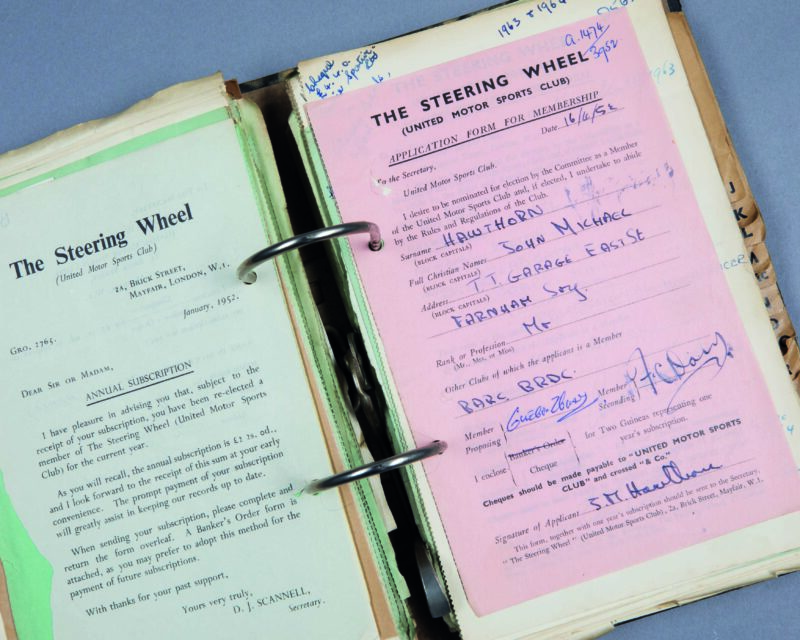 The Steering Wheel
(United Motor Sports Club)
2A, BRICK STREET,
MAYFAIR, LONDON, W.1.
GRO. 2765.
January, 1952.
DEAR SIR OR MADAM,
ANNUAL SUBSCRIPTION
I have pleasure in advising you that, subject to the
receipt of your subscription, you have been re-elected a
member of The Steering Wheel (United Motor Sports
Club) for the current year.
As you will recall, the annual subscription is £2 2s. od.,
and I look forward to the receipt of this sum at your early
convenience. The prompt payment of your subscription
will greatly assist in keeping our records up to date.
When sending your subscription, please complete and
return the form overleaf. A Banker's Order form is
attached, as you may prefer to adopt this method for the
payment of future subscriptions.
With thanks for your past support,
Yours very truly,
D. J. SCANNELL,
Secretary.
1963 & 1964
A.1474
3952
THE STEERING WHEEL
(UNITED MOTOR SPORTS CLUB)
APPLICATION FORM FOR MEMBERSHIP
Date 16/4/52
To the Secretary,
United Motor Sports Club.
I desire to be nominated for election by the Committee as a Member
of the United Motor Sports Club and, if elected, I undertake to abide
by the Rules and Regulations of the Club.
Surname HAWTHORN
(BLOCK CAPITALS)
Full Christian Names JOHN MICHAEL
(BLOCK CAPITALS)
Address T.T. GARAGE EAST ST
(BLOCK CAPITALS)
FARNHAM Sry
Rank or Profession Mr
(Mr., Mrs. or Miss)
Other Clubs of which the applicant is a Member
BARC BRDC.
Member Proposing
Member Seconding
I enclose Banker's Order Cheque for Two Guineas representing one
year's subscription.
Cheques should be made payable to "UNITED MOTOR SPORTS
CLUB" and crossed "& Co."
Signature of Applicant J.M. Hawthorn
This form, together with one year's subscription should be sent to the Secretary,
"The Steering Wheel" (United Motor Sports Club), 2a, Brick Street, Mayfair, W.1.
J
K
L